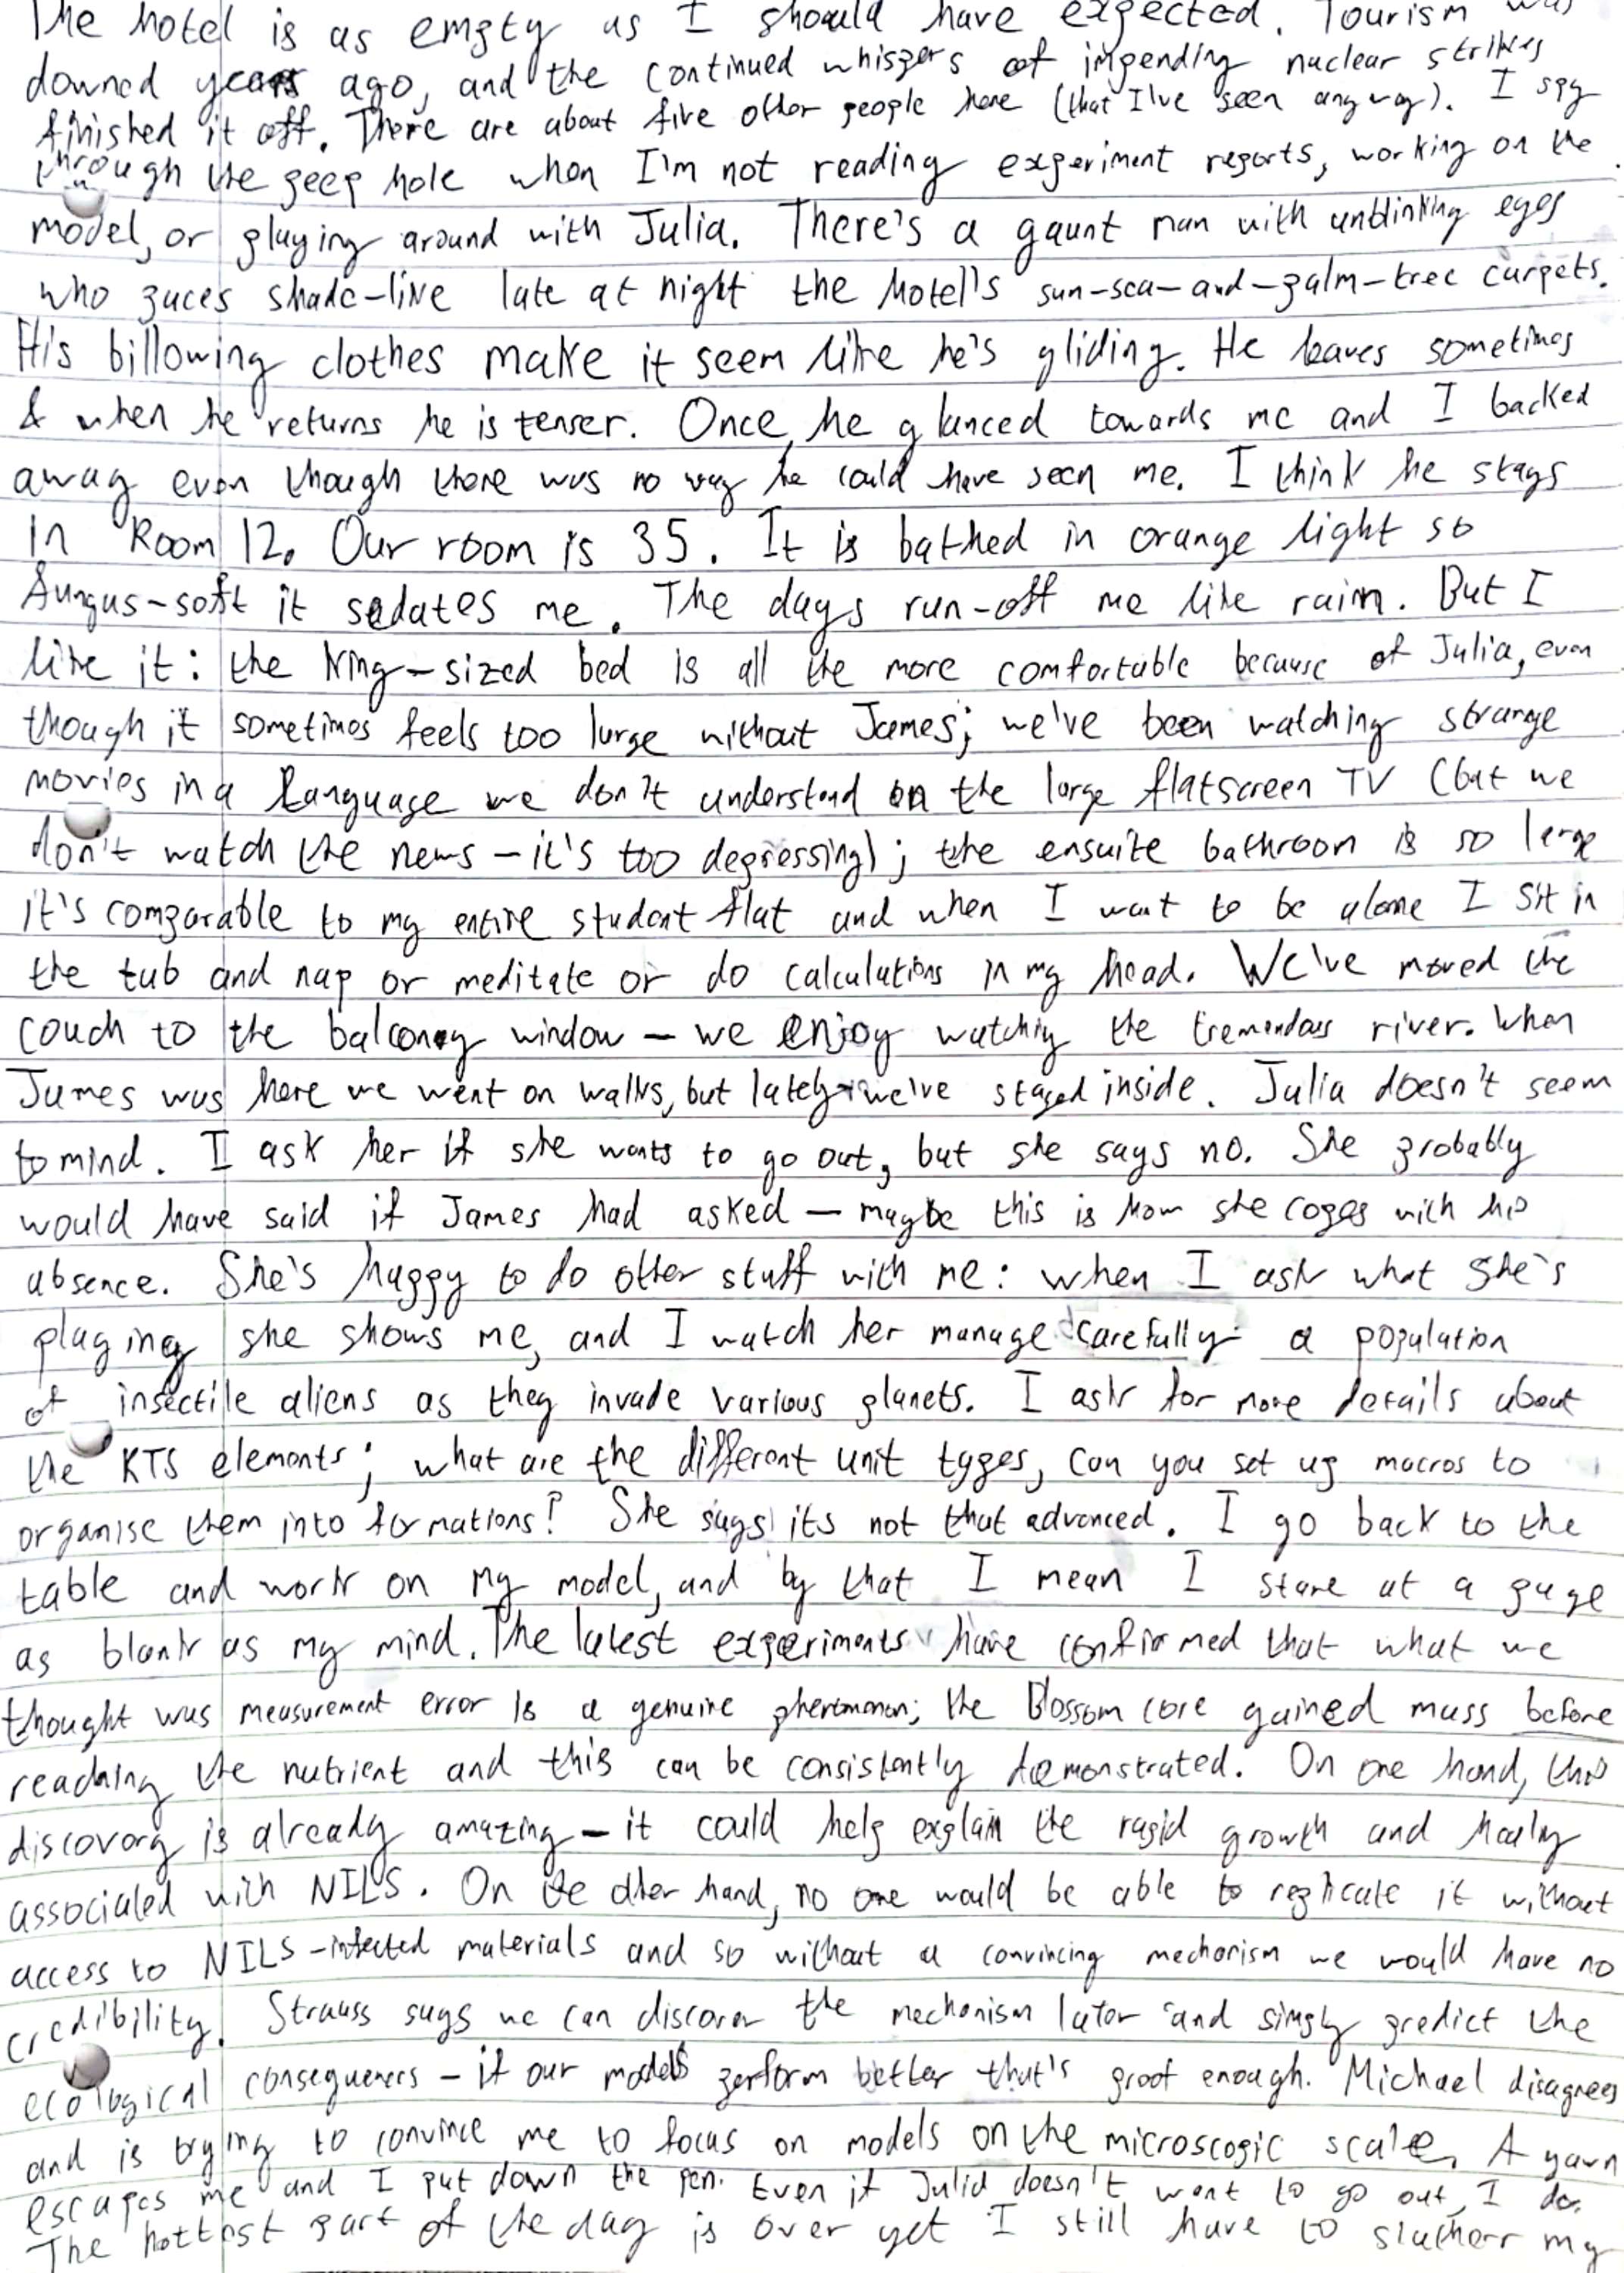 The hotel is as empty as I should have expected. Tourism was
downed years ago, and the continued whispers of impending nuclear strikes
finished it off. There are about five other people here (that I've seen anyway). I spy
through the peep hole when I'm not reading experiment reports, working on the
model, or playing around with Julia. There's a gaunt man with unblinking eyes
who paces shade-like late at night the hotel's sun-sea-and-palm-tree carpets.
His billowing clothes make it seem like he's gliding. He leaves sometimes
& when he returns he is tenser. Once, he glanced towards me and I backed
away even though there was no way he could have seen me. I think he stays
in Room 12. Our room is 35. It is bathed in orange light so
fungus-soft it sedates me. The days run-off me like rain. But I
like it: the king-sized bed is all the more comfortable because of Julia, even
though it sometimes feels too large without James; we've been watching strange
movies in a language we don't understand on the large flatscreen TV (but we
don't watch the news - it's too depressing); the ensuite bathroom is so large
it's comparable to my entire student flat and when I want to be alone I sit in
the tub and nap or meditate or do calculations in my head. We've moved the
couch to the balcony window - we enjoy watching the tremendous river. When
James was here we went on walks, but lately we've stayed inside. Julia doesn't seem
to mind. I ask her if she wants to go out, but she says no. She probably
would have said if James had asked - maybe this is how she copes with his
absence. She's happy to do other stuff with me: when I ask what she's
playing she shows me, and I watch her manage carefully a population
of insectile aliens as they invade various planets. I ask for more details about
the RTS elements; what are the different unit types, can you set up macros to
organise them into formations? She says its not that advanced. I go back to the
table and work on my model, and by that I mean I stare at a page
as blank as my mind. The latest experiments have confirmed that what we
thought was measurement error is a genuine phenomenon; the Blossom core gained mass before
reaching the nutrient and this can be consistently demonstrated. On one hand, this
discovery is already amazing - it could help explain the rapid growth and healing
associated with NILS. On the other hand, no one would be able to replicate it without
access to NILS-infected materials and so without a convincing mechanism we would have no
credibility. Strauss says we can discover the mechanism later and simply predict the
ecological consequences - if our models perform better that's proof enough. Michael disagrees
and is trying to convince me to focus on models on the microscopic scale. A yawn
escapes me and I put down the pen. Even if Julia doesn't want to go out, I do.
The hottest part of the day is over yet I still have to slather my